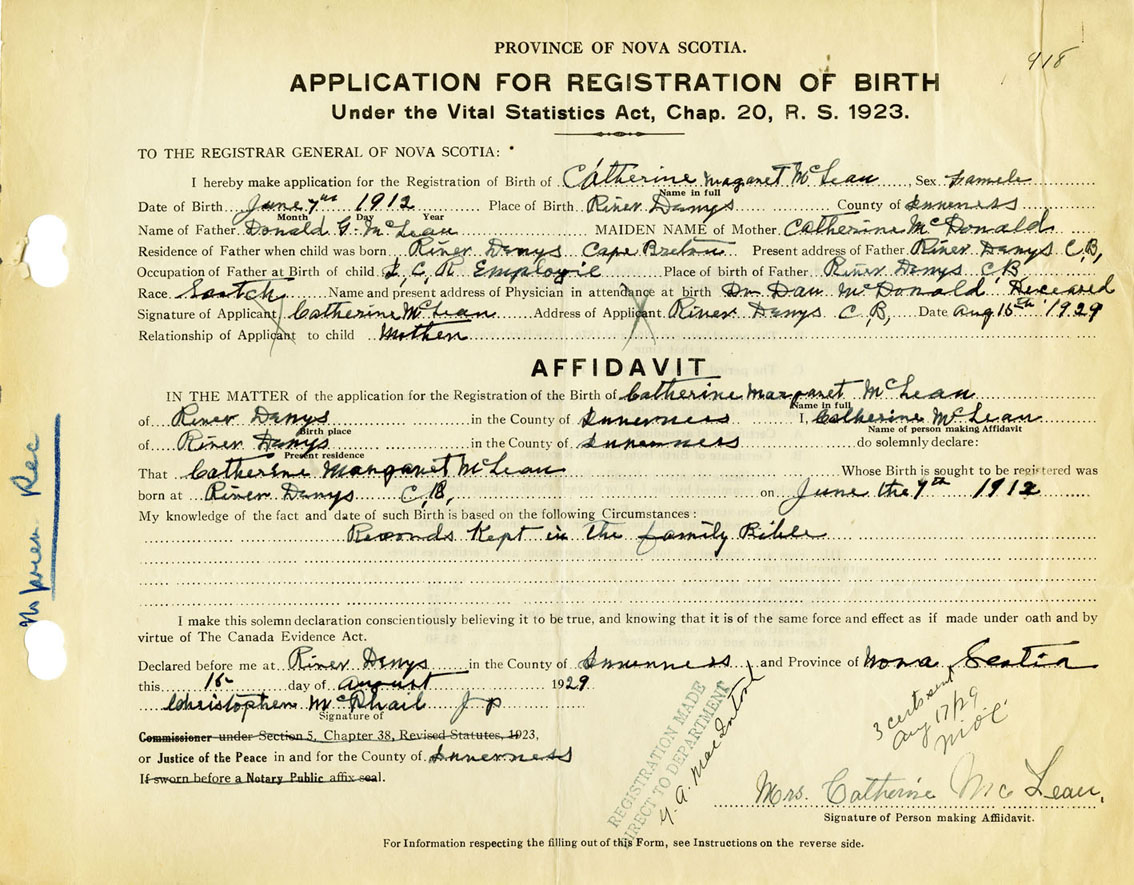 PROVINCE OF NOVA SCOTIA.
918
APPLICATION FOR REGISTRATION OF BIRTH
Under the Vital Statistics Act, Chap. 20, R. S. 1923.
TO THE REGISTRAR GENERAL OF NOVA SCOTIA:
I hereby make application for the Registration of Birth of Catherine Magaret McLean, Sex Famele
Name in full
Date of Birth June 7th 1912 Place of Birth River Denys County of Inverness
Month Day Year
Name of Father Donald G. McLean MAIDEN NAME of Mother Catherine McDonald
Residence of Father when child was born River Denys Cape Breton Present address of Father River Denys C B,
Occupation of Father at Birth of child I, C, R Employie Place of birth of Father River Denys C B
Race Scotch Name and present address of Physician in attendance at birth Dr Dan McDonald Deceased
Signature of Applicant Catherine McLean Address of Applicant River Denys C, B, Date Aug 16th 1929
Relationship of Applicant to child Mother
AFFIDAVIT
IN THE MATTER of the application for the Registration of the Birth of Catherine Margaret McLean
Name in full
of River Denys in the County of Inverness I, Catherine McLean
Birth place Name of person making Affidavit
of River Denys in the County of Inverness do solemnly declare:
Present residence
That Catherine Margaret McLean Whose Birth is sought to be registered was
born at River Denys C, B, on June the 7th 1912
My knowledge of the fact and date of such Birth is based on the following Circumstances:
Records Kept in the family Bible
I make this solemn declaration conscientiously believing it to be true, and knowing that it is of the same force and effect as if made under oath and by
virtue of The Canada Evidence Act.
Declared before me at River Denys in the County of Inverness and Province of Nova Scotia
this 16 day of August 1929
Christopher McPhail J P
Signature of
Commissioner under Section 5, Chapter 38, Revised Statutes, 1923,
or Justice of the Peace in and for the County of Inverness
If sworn before a Notary Public affix seal.
REGISTRATION MADE
DIRECT TO DEPARTMENT
MacIntosh
3 certs sent
Aug 17/29
Mrs. Catherine McLean,
Signature of Person making Affiidavit.
For Information respecting the filling out of this Form, see Instructions on the reverse side.
Rec